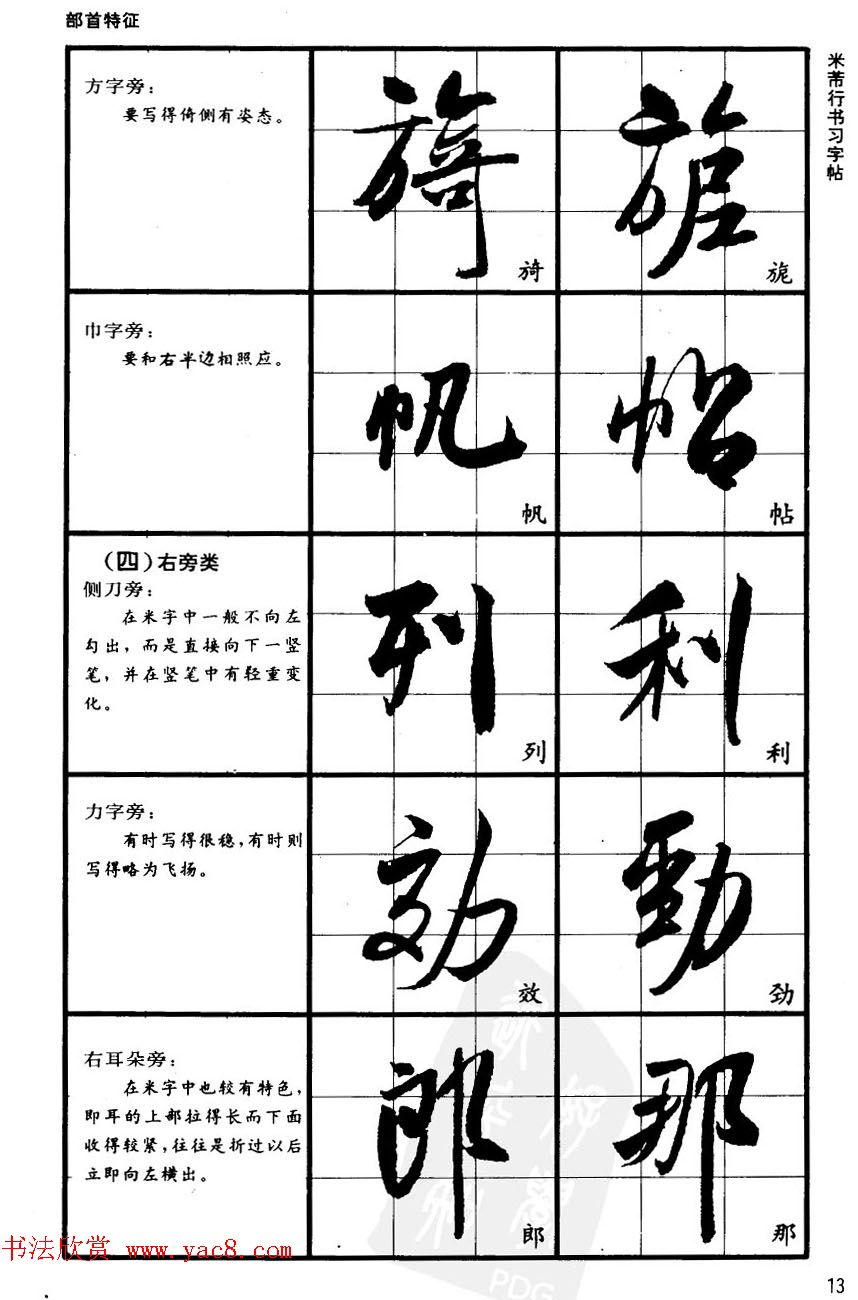 部首特征
米芾行书习字帖
方字旁：
要写得倚侧有姿态。
旖
旎
巾字旁：
要和右半边相照应。
帆
帖
（四）右旁类
侧刀旁：
在米字中一般不向左
勾出，而是直接向下一竖
笔，并在竖笔中有轻重变
化。
列
利
力字旁：
有时写得很稳，有时则
写得略为飞扬。
效
劲
右耳朵旁：
在米字中也较有特色，
即耳的上部拉得长而下面
收得较紧，往往是折过以后
立即向左横出。
郎
那
书法欣赏 www.yac8.com
PDG
13